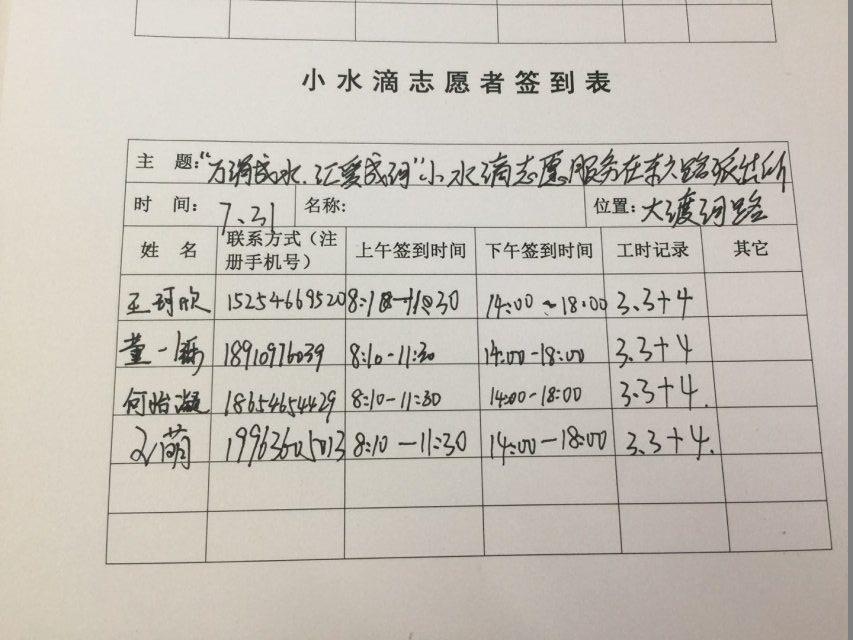 小水滴志愿者签到表
主 题:“万涓成水.汇爱成河”小水滴志愿服务在东久路派出所
时 间: 7.31 名称: 位置: 大渡河路
姓 名 联系方式(注册手机号) 上午签到时间 下午签到时间 工时记录 其它
王珂欣 15254669520 8:10-11:30 14:00~18:00 3.3+4
董一 18910976039 8:10-11:30 14:00-18:00 3.3+4
何怡凝 18654654429 8:10-11:30 14:00-18:00 3.3+4.
萌 19963605013 8:10-11:30 14:00-18:00 3.3+4.